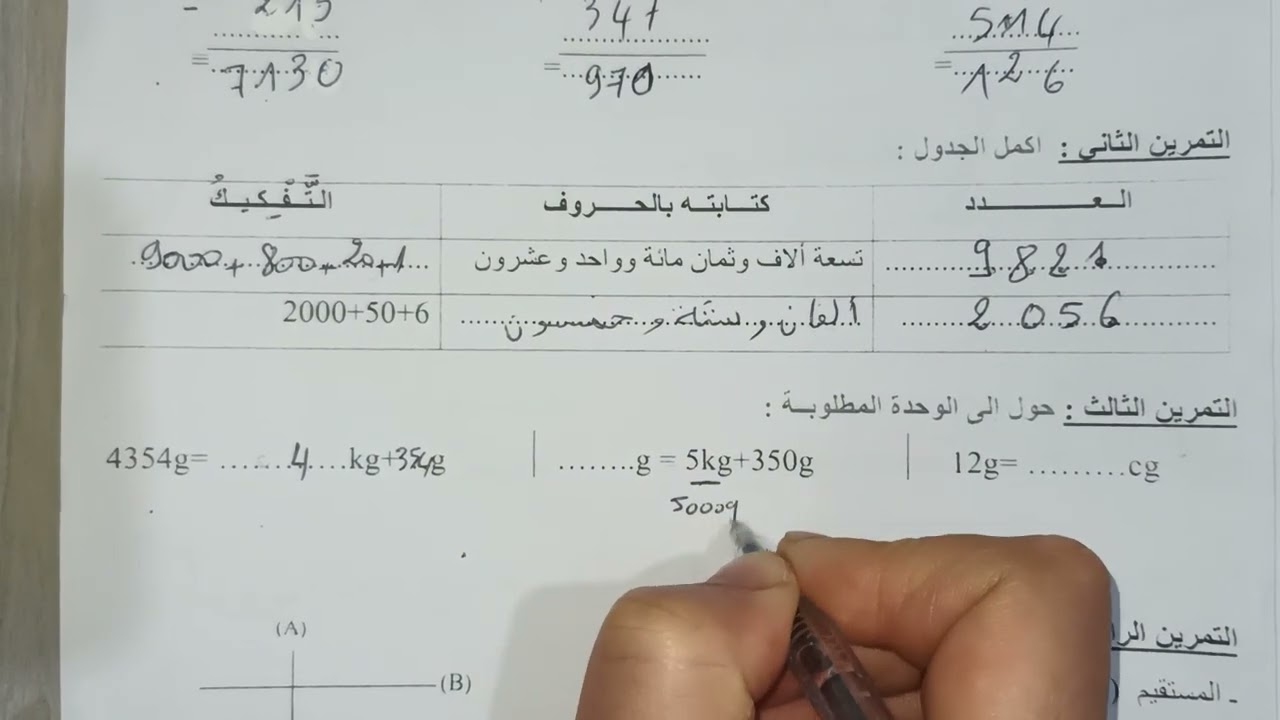 - 215 347 5114
= 7130 = 970 = 126
التمرين الثاني : اكمل الجدول :
العدد كتابته بالحروف التَّفْكِيكُ
9821 تسعة ألاف وثمان مائة وواحد وعشرون 9000+800+20+1
2056 ألفان و ستة و خمسون 2000+50+6
التمرين الثالث : حول الى الوحدة المطلوبة :
4354g= ........4....kg+354g | ........g = 5kg+350g | 12g= .........cg
5000g
التمرين الرا
(A)
(B)
- المستقيم (